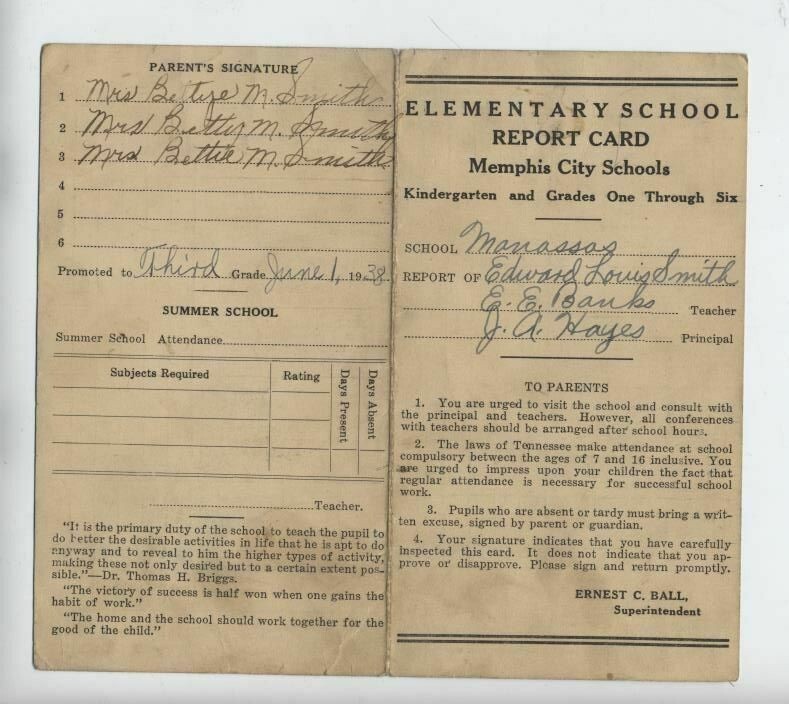 PARENT'S SIGNATURE
1 Mrs Bettye M. Smith
2 Mrs Bettie M. Smith
3 Mrs Bettie M. Smith
4
5
6
Promoted to Third Grade June 1, 1938
SUMMER SCHOOL
Summer School Attendance
Subjects Required Rating Days Present Days Absent
Teacher.
"It is the primary duty of the school to teach the pupil to
do better the desirable activities in life that he is apt to do
anyway and to reveal to him the higher types of activity,
making these not only desired but to a certain extent pos-
sible."—Dr. Thomas H. Briggs.
"The victory of success is half won when one gains the
habit of work."
"The home and the school should work together for the
good of the child."
ELEMENTARY SCHOOL
REPORT CARD
Memphis City Schools
Kindergarten and Grades One Through Six
SCHOOL Manassas
REPORT OF Edward Louis Smith
E. E. Banks Teacher
J. A. Hayes Principal
TO PARENTS
1. You are urged to visit the school and consult with
the principal and teachers. However, all conferences
with teachers should be arranged after school hours.
2. The laws of Tennessee make attendance at school
compulsory between the ages of 7 and 16 inclusive. You
are urged to impress upon your children the fact that
regular attendance is necessary for successful school
work.
3. Pupils who are absent or tardy must bring a writ-
ten excuse, signed by parent or guardian.
4. Your signature indicates that you have carefully
inspected this card. It does not indicate that you ap-
prove or disapprove. Please sign and return promptly.
ERNEST C. BALL,
Superintendent